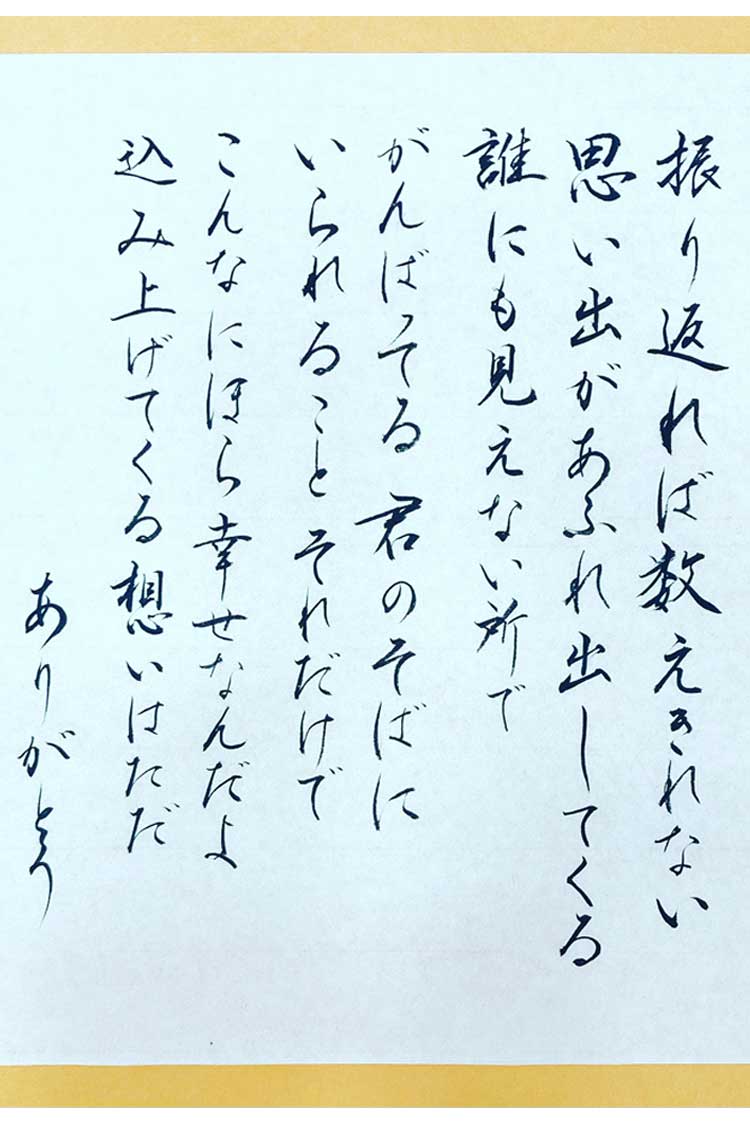 振り返れば数えきれない
思い出があふれ出してくる
誰にも見えない所で
がんばってる 君のそばに
いられること それだけで
こんなにほら幸せなんだよ
込み上げてくる想いはただ
ありがとう